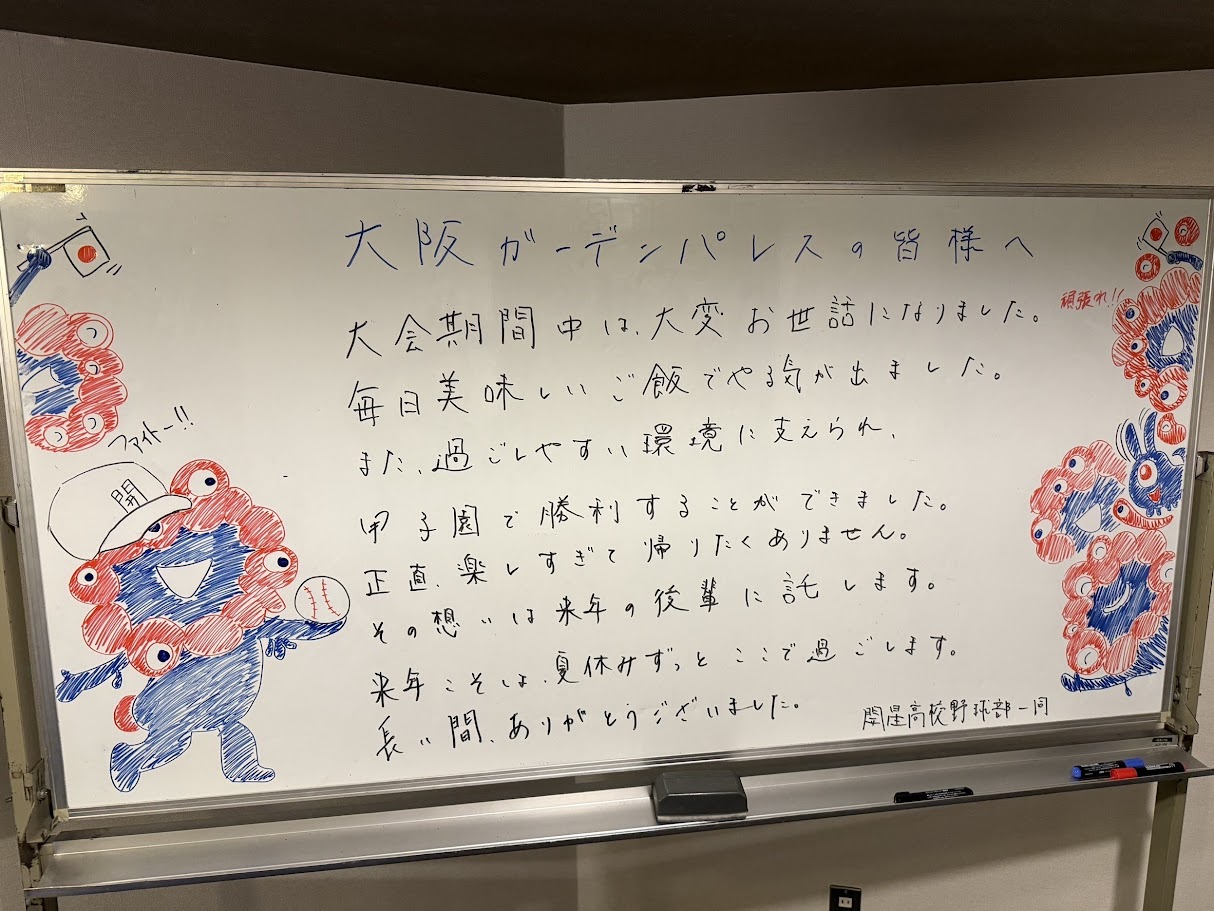 大阪ガーデンパレスの皆様へ
大会期間中は、大変お世話になりました。
毎日美味しいご飯でやる気が出ました。
また、過ごしやすい環境に支えられ、
甲子園で勝利することができました。
正直、楽しすぎて帰りたくありません。
その想いは来年の後輩に託します。
来年こそは、夏休みずっとここで過ごします。
長い間、ありがとうございました。
開星高校野球部一同
ファイトー!!
開
頑張れ!!